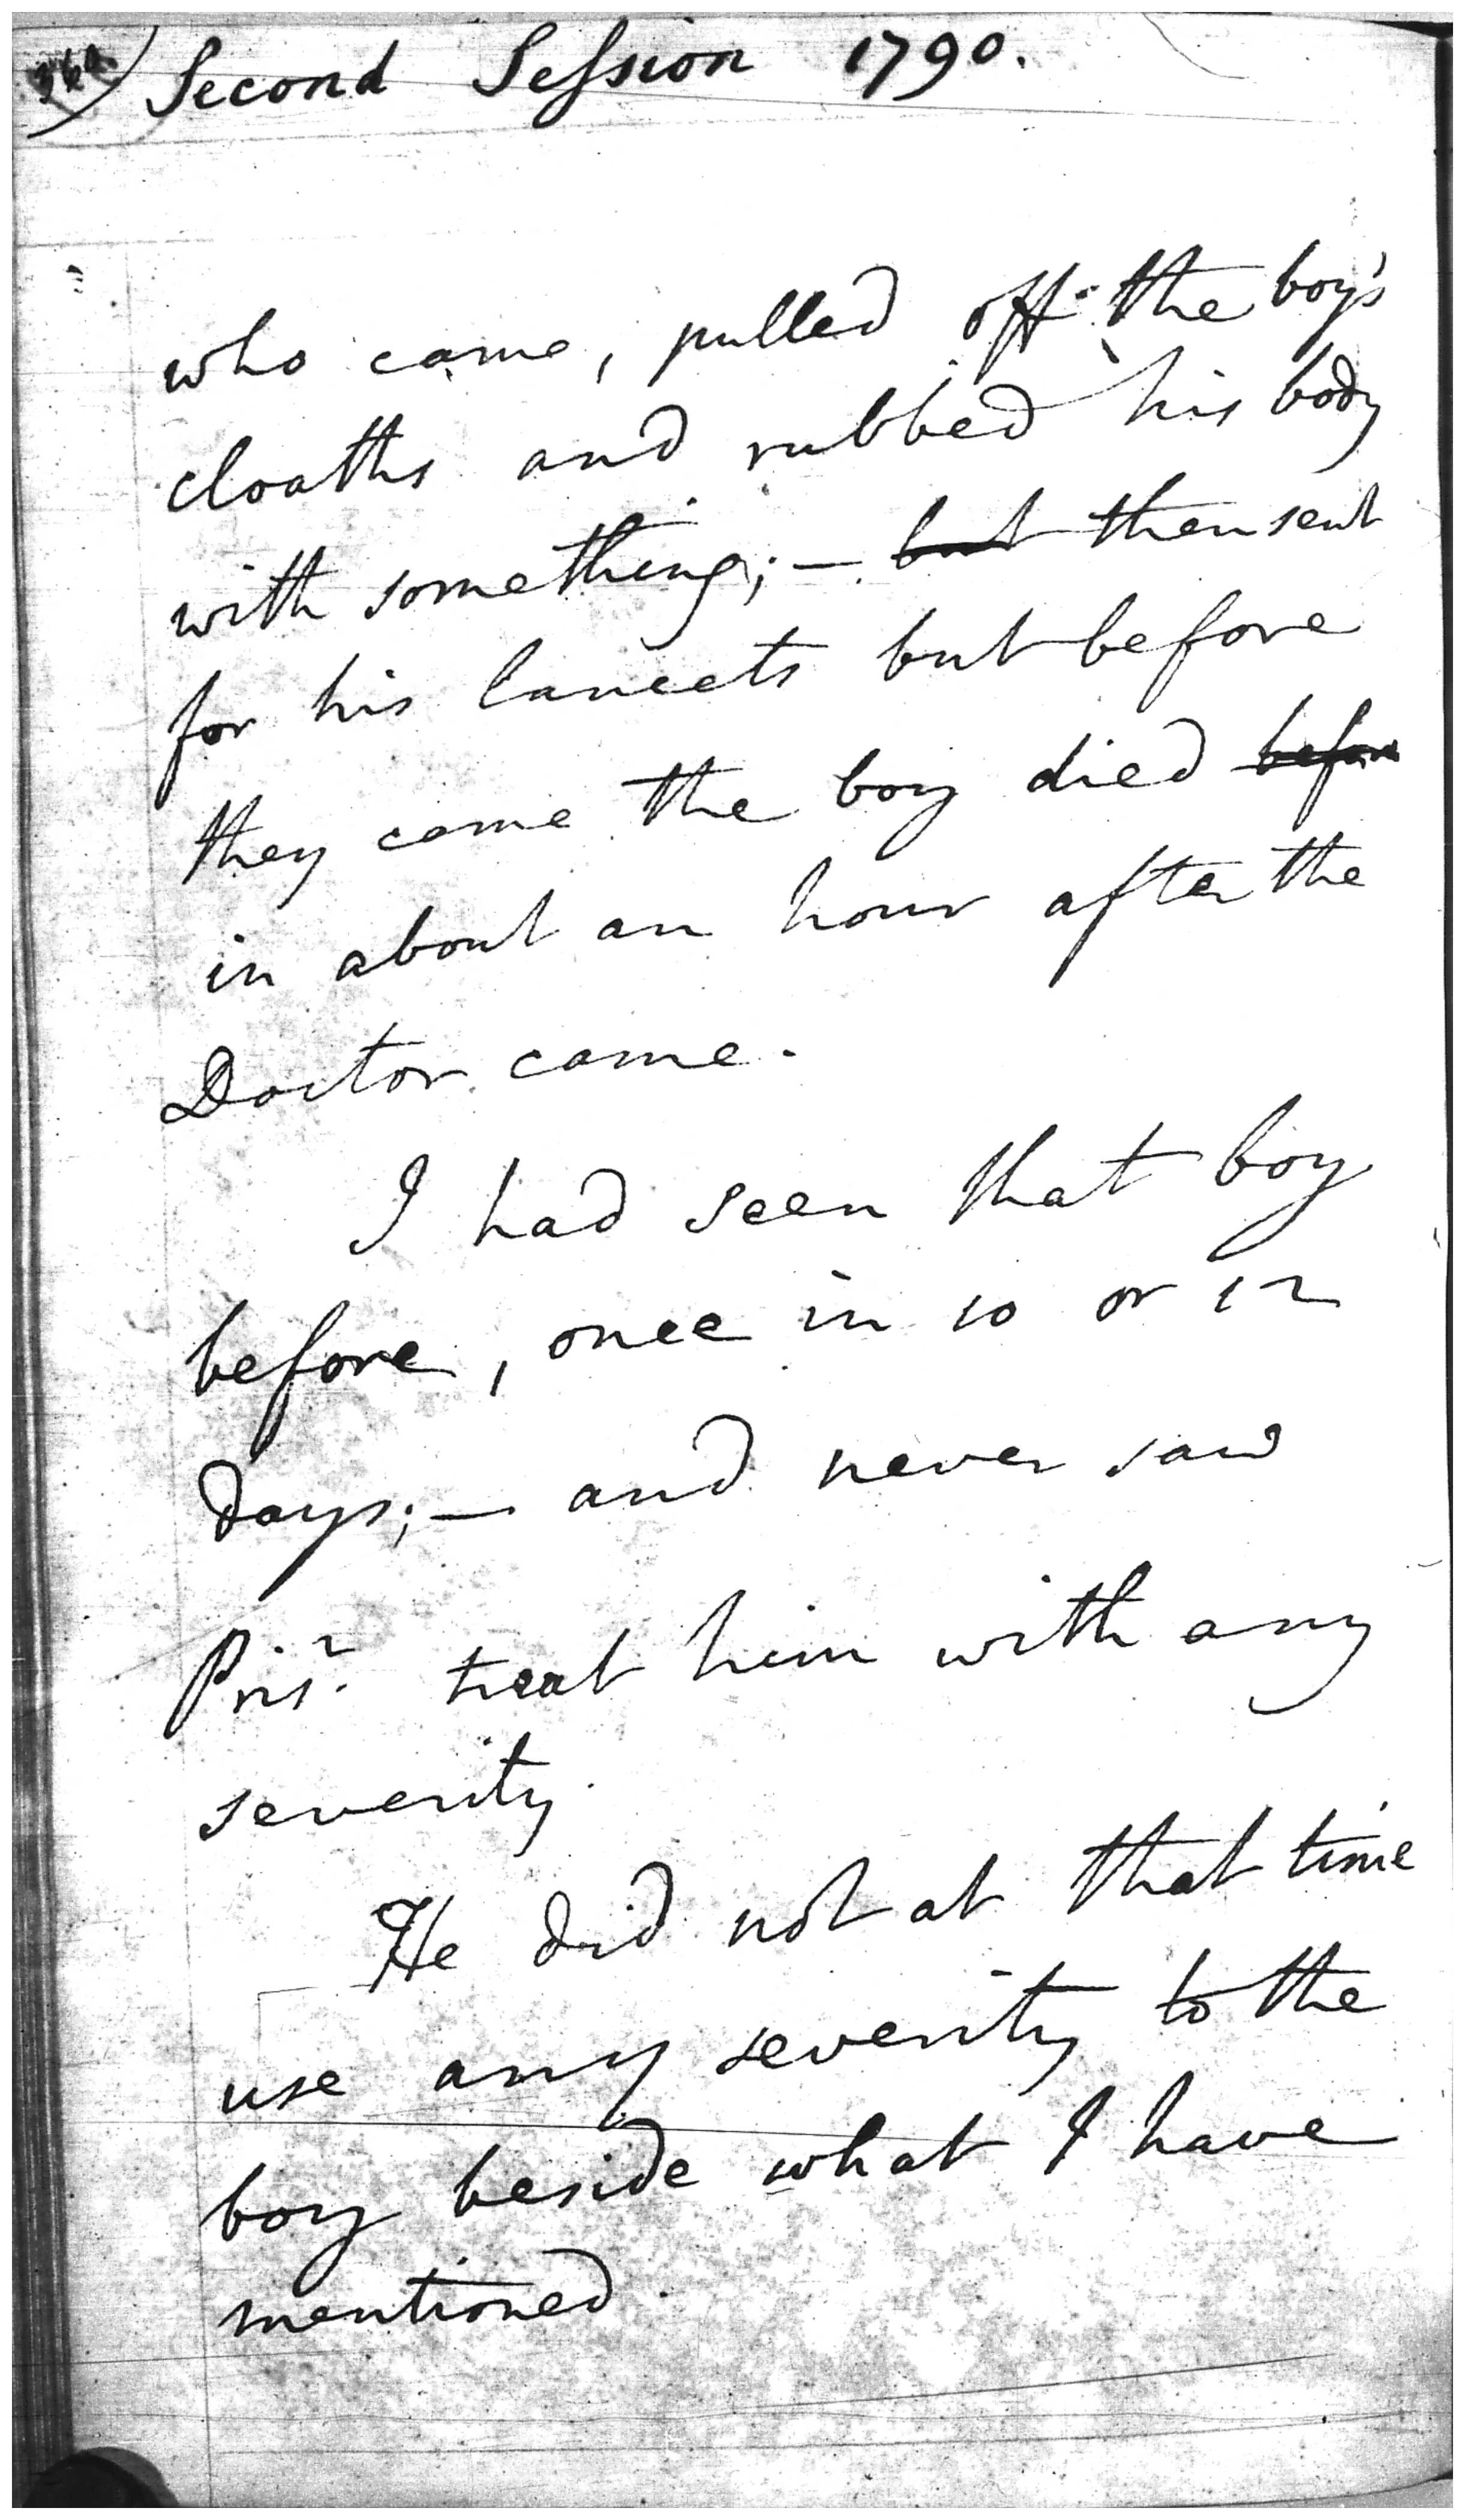 Second Session 1790.
who came, pulled off the boy's
cloaths and rubbed his body
with something; — but then sent
for his lancets but before
they came the boy died before
in about an hour after the
Doctor came.
I had seen that boy
before, once in 10 or 12
days; — and never saw
Prisr. treat him with any
severity.
He did not at that time
use any severity to the
boy beside what I have
mentioned.